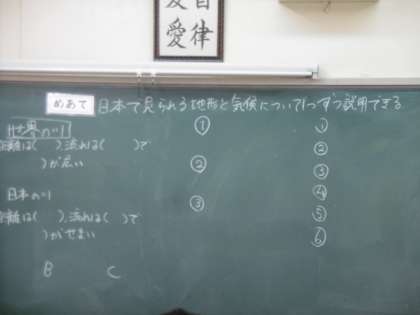 愛 律
めあて 日本で見られる地形と気候について1つずつ説明できる
世界の川
距離は( )、流れは( )で
( )が広い
日本の川
距離は( )、流れは( )で
( )がせまい
B C
①
②
③
①
②
③
④
⑤
⑥